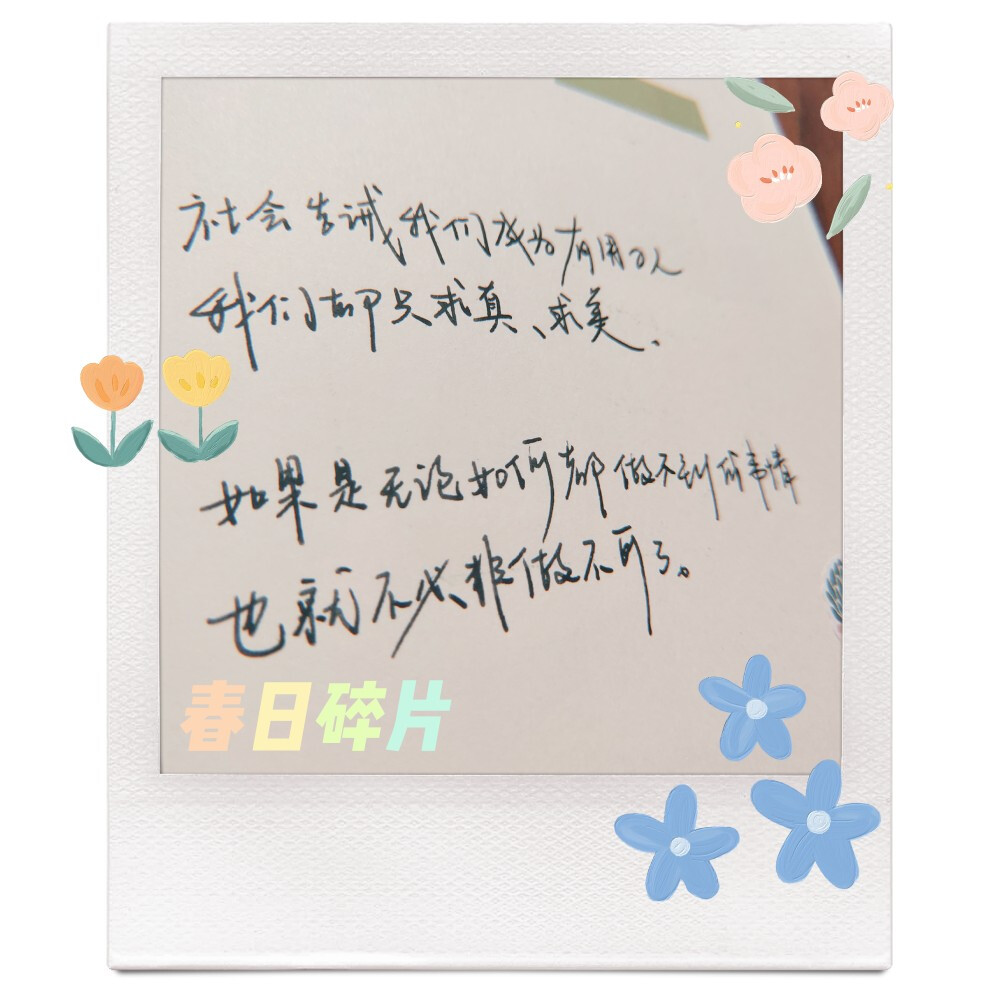 社会告诫我们成为有用的人
我们却只求真、求美.
如果是无论如何都做不到的事情
也就不必非做不可了。
春日碎片